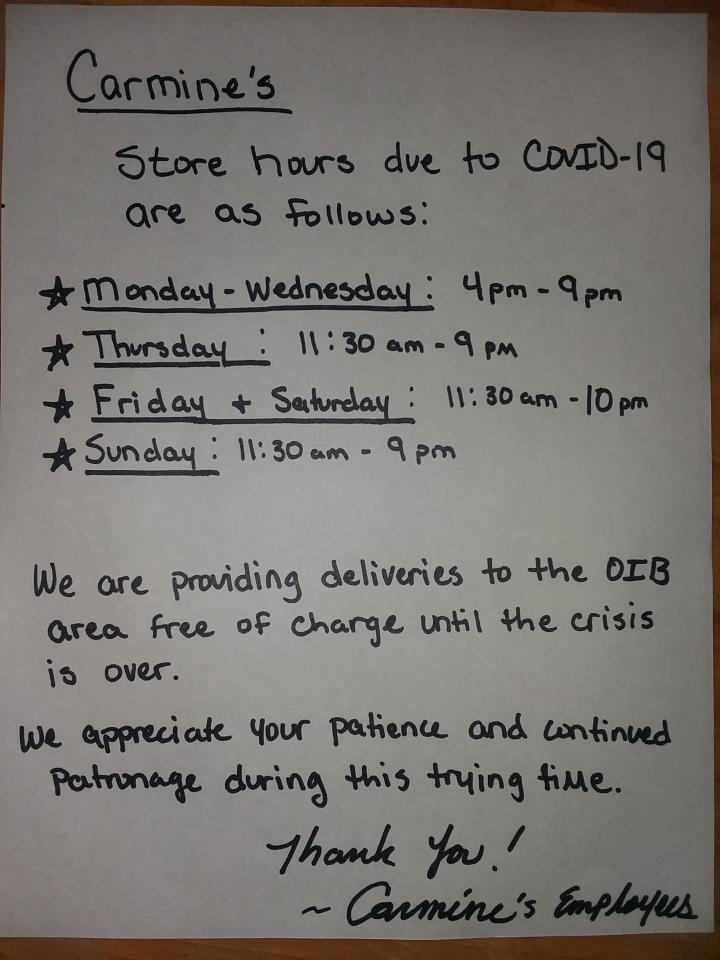 Carmine's
Store hours due to COVID-19
are as follows:
☆ Monday - Wednesday: 4pm - 9pm
☆ Thursday: 11:30 am - 9 pm
☆ Friday + Saturday: 11:30 am - 10 pm
☆ Sunday: 11:30 am - 9 pm
We are providing deliveries to the OIB
area free of charge until the crisis
is over.
We appreciate your patience and continued
patronage during this trying time.
Thank You!
~ Carmine's Employees